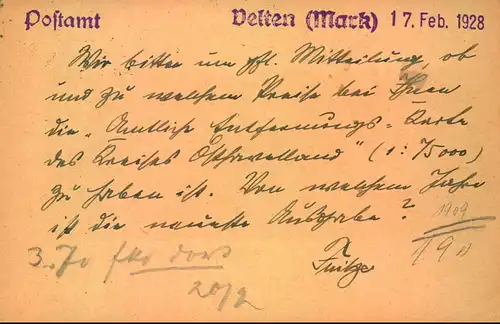 Postamt Velten (Mark) 17. Feb. 1928
Wir bitten um gfl. Mitteilung, ob
und zu welchem Preise bei Ihnen
die „Amtliche Entfernungs-Karte
des Kreises Osthavelland" (1:75000)
zu haben ist. Von welchem Jahre
ist die neueste Ausgabe? 1909
3.70 fko dort
20/2